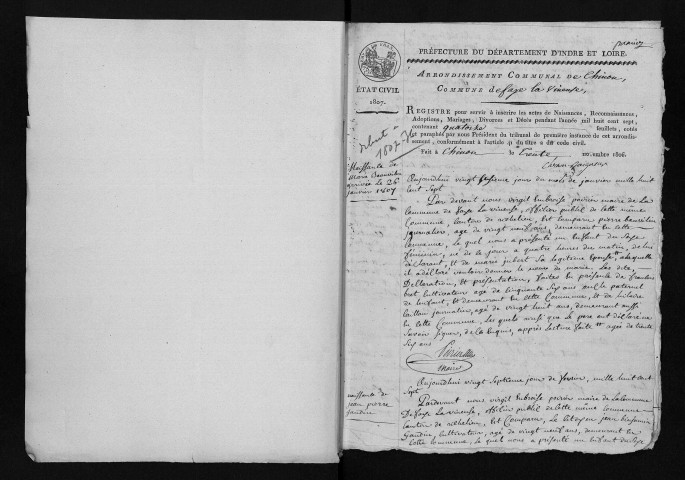 premier
PRÉFECTURE DU DÉPARTEMENT D'INDRE ET LOIRE.
ARRONDISSEMENT COMMUNAL DE Chinon,
COMMUNE de faye la vineuse,
ÉTAT CIVIL
1807.
REGISTRE pour servir à inscrire les actes de Naissances, Reconnaissances,
Adoptions, Mariages, Divorces et Décès pendant l'année mil huit cent sept,
contenant quatorze feuillets, cotés
et paraphés par nous Président du tribunal de première instance de cet arrondis-
sement, conformément à l'article 41 du titre 2 du code civil.
Fait à Chinon le trente novembre 1806.
debut
1807
Naissance de
Marie
arrivée le 26
janvier 1807
Aujourdhui vingt jour du mois de janvier mille huit
cent sept
Par devant nous virgil ambroise poirier maire de La
Commune de faye La vineuse, officier public de cette même
Commune, canton de richelieu, est comparu pierre
journallier, agé de vingt neuf ans, demeurant en cette
Commune, le quel nous a présenté un enfant du sexe
féminin, né de le jour a quatre heures du matin, de lui
déclarant, et de marie jubert sa legitime epouse, a laquelle
il a déclaré vouloir donner le nom de marie. Les dite,
Declaration, et présentation, faites en présence de francois
bret cultivateur agé de cinquante six ans oncle paternel
de lenfant, et demeurant en cette Commune, et de hilaire
journalier, agé de vingt huit ans, demeurant aussi
en cette Commune, Les quels ainsi que le pere ont déclaré ne
savoir signer, de la enquis, apprès lecture faite
six ans
maire
naissance de
jean pierre
gaudin
Aujourdhui vingt septieme jour de fevrier, mille huit cent
sept
Pardevant nous virgil ambroise poirier maire de La Commune
De faye La vineuse, officier public de cette même Commune
canton de richelieu, est Comparu, Le Citoyen jean benjamin
Gaudin, cultivateur, agé de vingt neuf ans, demeurant en
cette Commune, le quel nous a présenté un enfant du sexe